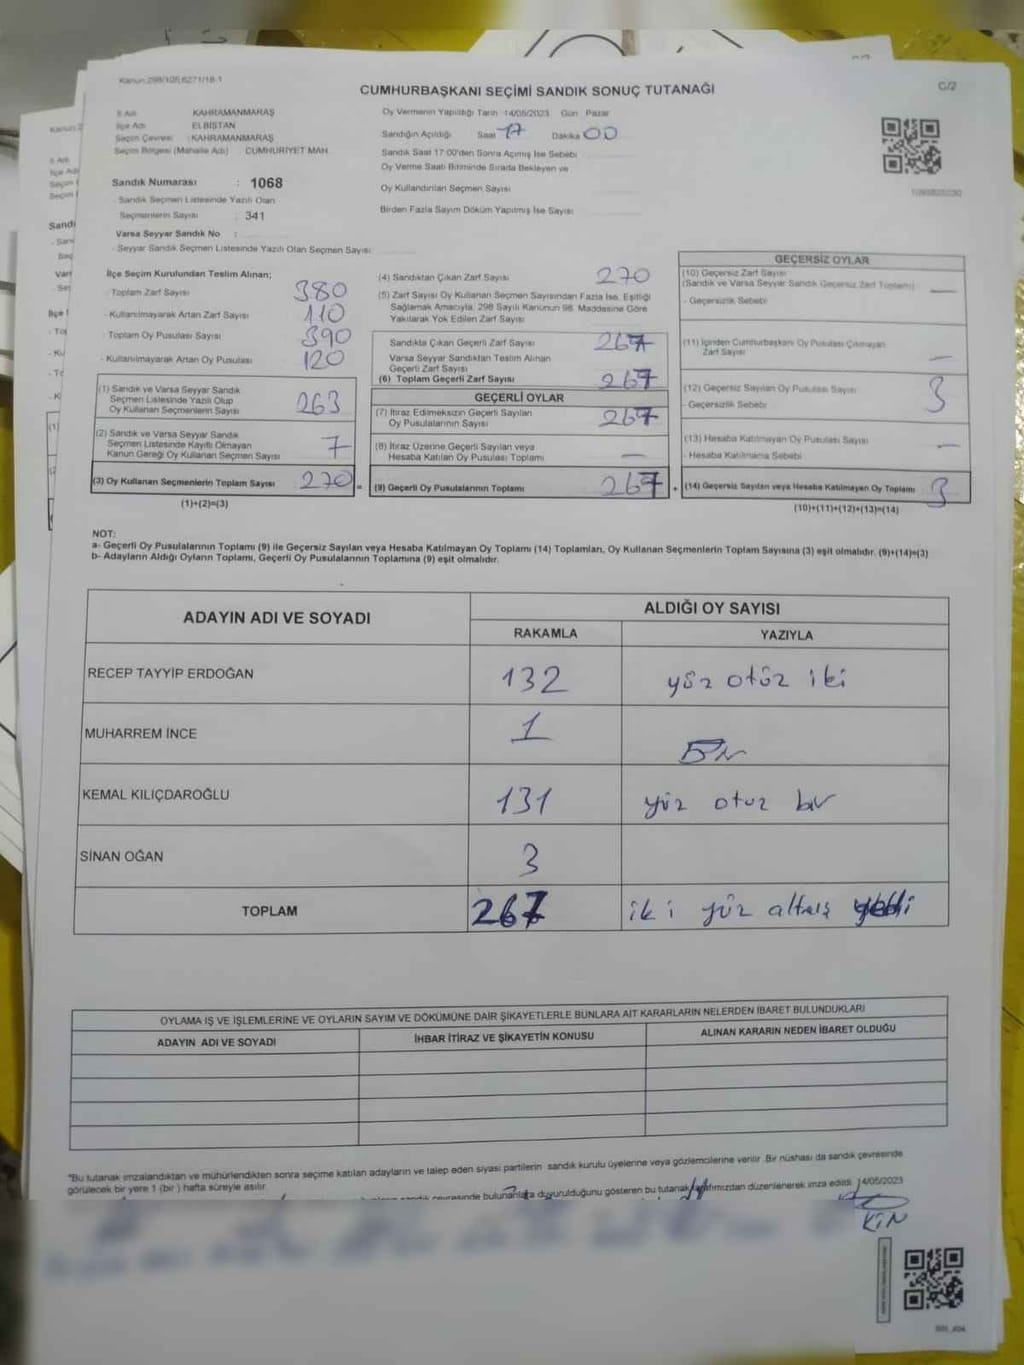 Kanun 298/105,6271/18-1
CUMHURBAŞKANI SEÇİMİ SANDIK SONUÇ TUTANAĞI
C/2
İl Adı KAHRAMANMARAŞ
İlçe Adı ELBİSTAN
Seçim Çevresi : KAHRAMANMARAŞ
Seçim Bölgesi (Mahalle Adı) CUMHURİYET MAH.
Sandık Numarası : 1068
Sandık Seçmen Listesinde Yazılı Olan
Seçmenlerin Sayısı : 341
Varsa Seyyar Sandık No :
- Seyyar Sandık Seçmen Listesinde Yazılı Olan Seçmen Sayısı:
Oy Vermenin Yapıldığı Tarih 14/05/2023 Gün Pazar
Sandığın Açıldığı Saat 17 Dakika 00
Sandık Saat 17:00'den Sonra Açılmış İse Sebebi
Oy Verme Saati Bitiminde Sırada Bekleyen ve
Oy Kullandırılan Seçmen Sayısı
Birden Fazla Sayım Döküm Yapılmış İse Sayısı
İlçe Seçim Kurulundan Teslim Alınan;
- Toplam Zarf Sayısı 380
- Kullanılmayarak Artan Zarf Sayısı 110
- Toplam Oy Pusulası Sayısı 390
- Kullanılmayarak Artan Oy Pusulası 120
(1) Sandık ve Varsa Seyyar Sandık
Seçmen Listesinde Yazılı Olup
Oy Kullanan Seçmenlerin Sayısı 263
(2) Sandık ve Varsa Seyyar Sandık
Seçmen Listesinde Kayıtlı Olmayan
Kanun Gereği Oy Kullanan Seçmen Sayısı 7
(3) Oy Kullanan Seçmenlerin Toplam Sayısı 270 =
(1)+(2)=(3)
(4) Sandıktan Çıkan Zarf Sayısı 270
(5) Zarf Sayısı Oy Kullanan Seçmen Sayısından Fazla İse, Eşitliği
Sağlamak Amacıyla, 298 Sayılı Kanunun 98. Maddesine Göre
Yakılarak Yok Edilen Zarf Sayısı
Sandıkta Çıkan Geçerli Zarf Sayısı 267
Varsa Seyyar Sandıktan Teslim Alınan
Geçerli Zarf Sayısı
(6) Toplam Geçerli Zarf Sayısı 267
GEÇERLİ OYLAR
(7) İtiraz Edilmeksizin Geçerli Sayılan
Oy Pusulalarının Sayısı 267
(8) İtiraz Üzerine Geçerli Sayılan veya
Hesaba Katılan Oy Pusulası Toplamı —
(9) Geçerli Oy Pusulalarının Toplamı 267 +
GEÇERSİZ OYLAR
(10) Geçersiz Zarf Sayısı
(Sandık ve Varsa Seyyar Sandık Geçersiz Zarf Toplamı) —
- Geçersizlik Sebebi
(11) İçinden Cumhurbaşkanı Oy Pusulası Çıkmayan
Zarf Sayısı —
(12) Geçersiz Sayılan Oy Pusulası Sayısı 3
- Geçersizlik Sebebi
(13) Hesaba Katılmayan Oy Pusulası Sayısı —
- Hesaba Katılmama Sebebi
(14) Geçersiz Sayılan veya Hesaba Katılmayan Oy Toplamı 3
(10)+(11)+(12)+(13)=(14)
NOT:
a- Geçerli Oy Pusulalarının Toplamı (9) ile Geçersiz Sayılan veya Hesaba Katılmayan Oy Toplamı (14) Toplamları, Oy Kullanan Seçmenlerin Toplam Sayısına (3) eşit olmalıdır. (9)+(14)=(3)
b- Adayların Aldığı Oyların Toplamı, Geçerli Oy Pusulalarının Toplamına (9) eşit olmalıdır.
ADAYIN ADI VE SOYADI
ALDIĞI OY SAYISI
RAKAMLA YAZIYLA
RECEP TAYYİP ERDOĞAN 132 yüz otüz iki
MUHARREM İNCE 1 Bir
KEMAL KILIÇDAROĞLU 131 yüz otuz bir
SİNAN OĞAN 3
TOPLAM 267 iki yüz altmış yedi
OYLAMA İŞ VE İŞLEMLERİNE VE OYLARIN SAYIM VE DÖKÜMÜNE DAİR ŞİKAYETLERLE BUNLARA AİT KARARLARIN NELERDEN İBARET BULUNDUKLARI
ADAYIN ADI VE SOYADI İHBAR İTİRAZ VE ŞİKAYETİN KONUSU ALINAN KARARIN NEDEN İBARET OLDUĞU
"Bu tutanak imzalandıktan ve mühürlendikten sonra seçime katılan adayların ve talep eden siyasi partilerin sandık kurulu üyelerine veya gözlemcilerine verilir. Bir nüshası da sandık çevresinde
görülecek bir yere 1 (bir) hafta süreyle asılır.
sandık çevresinde bulunanlara duyurulduğunu gösteren bu tutanak tarafımızdan düzenlenerek imza edildi. 14/05/2023
KIN